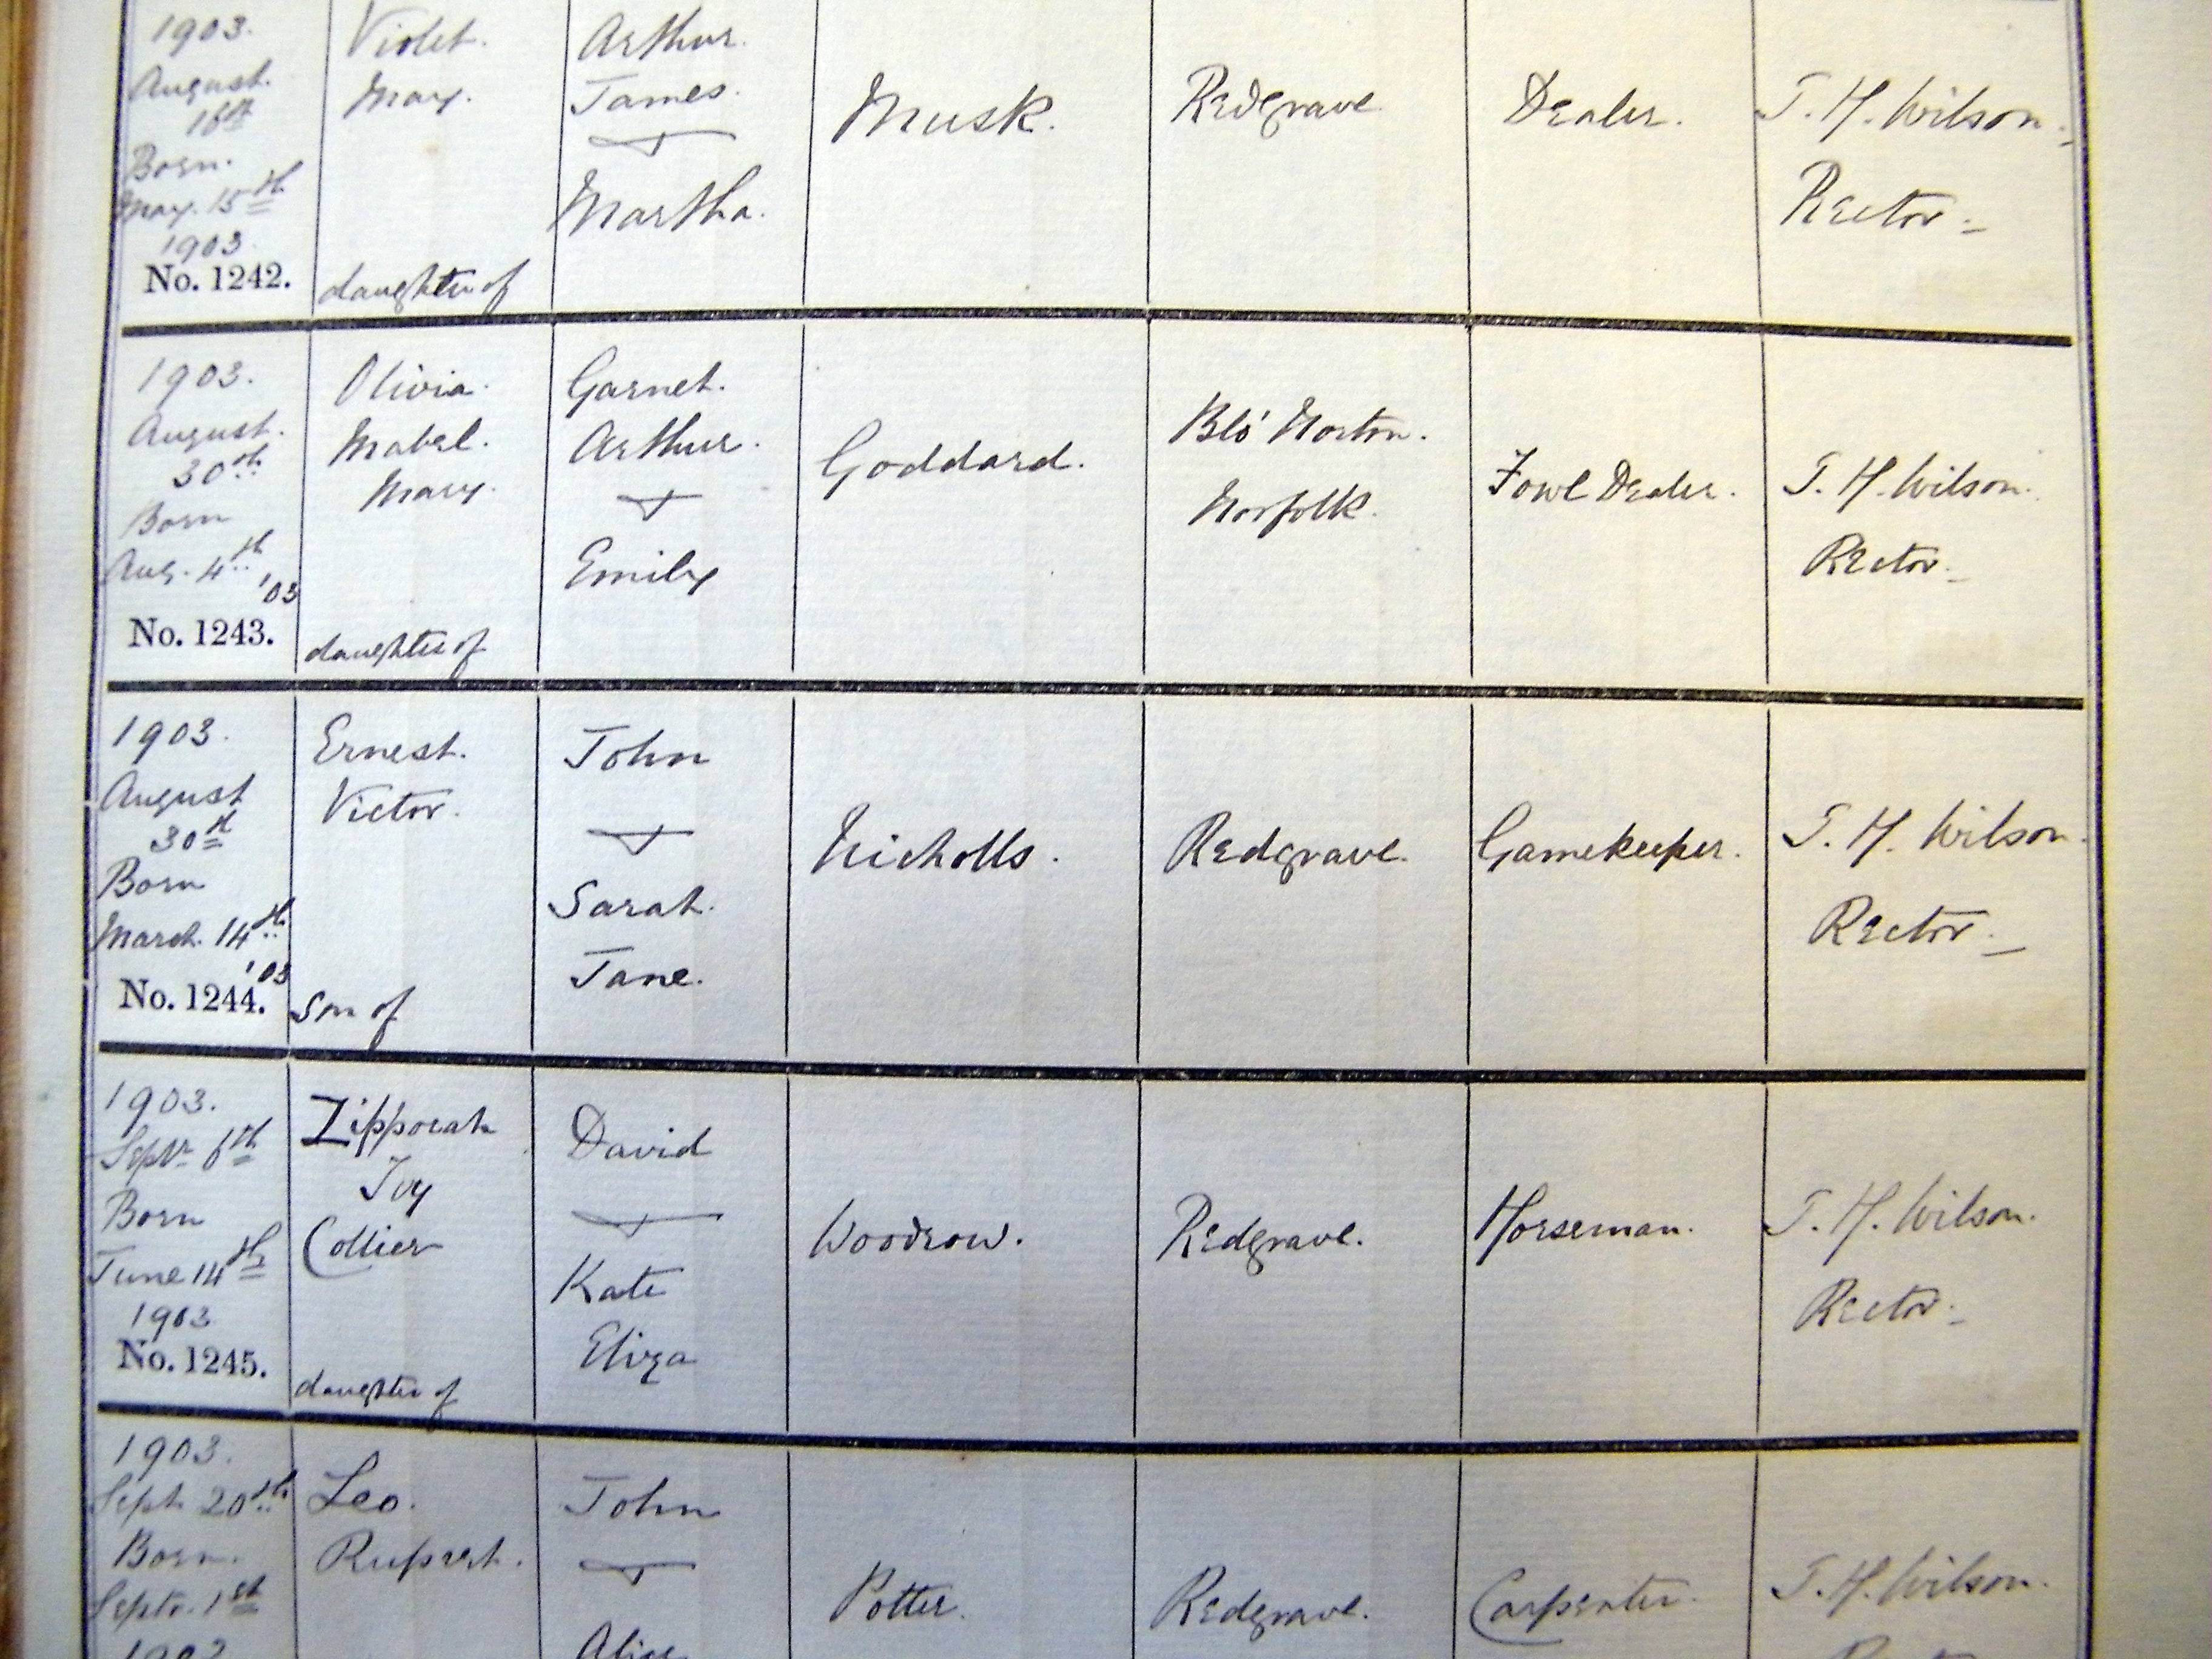 1903.
August.
16th
Born.
May. 15th
1903
No. 1242.
Violet.
May.
daughter of
Arthur.
James.
Martha.
Musk.
Redgrave
Dealer.
T. H. Wilson.
Rector.
1903.
August.
30th
Born
Aug. 4th
'03
No. 1243.
Olivia.
Mabel.
Mary.
daughter of
Garnet.
Arthur.
Emily
Goddard.
Blo' Norton.
Norfolk.
Fowl Dealer.
T. H. Wilson.
Rector.
1903.
August
30th
Born
March. 14th
'03
No. 1244.
Ernest.
Victor.
son of
John
Sarah.
Jane.
Nicholls.
Redgrave.
Gamekeeper.
T. H. Wilson.
Rector.
1903.
Septr 6th
Born
June 14th
1903
No. 1245.
Zipporah
Ivy
Collier
daughter of
David
Kate
Eliza
Woodrow.
Redgrave.
Horseman.
T. H. Wilson.
Rector.
1903.
Sept. 20th
Born.
Septr. 1st
1903
Leo.
Rupert.
John
Alice
Potter.
Redgrave.
Carpenter.
T. H. Wilson.